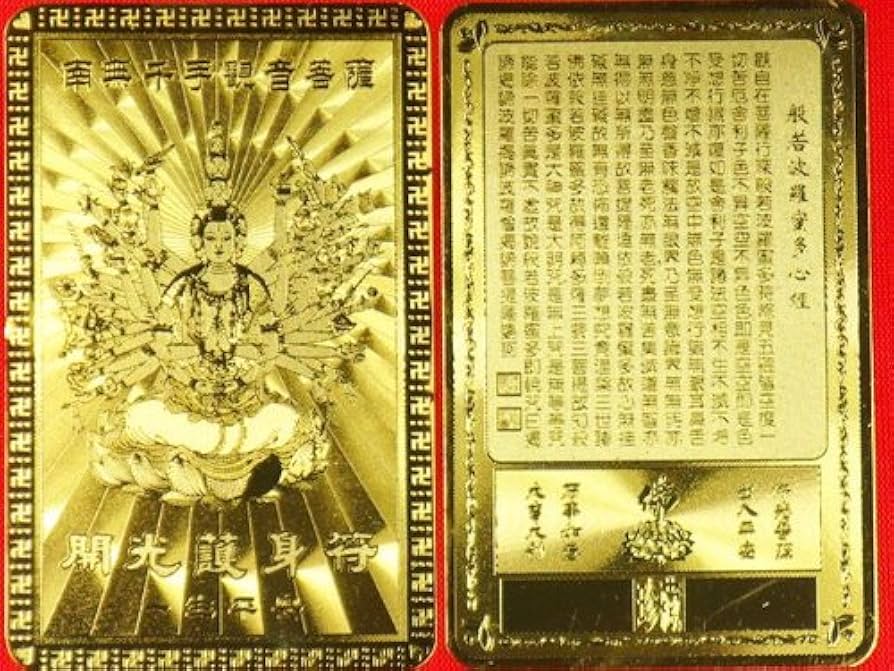 南無千手觀音菩薩
開光護身符
般若波羅蜜多心經
觀自在菩薩行深般若波羅蜜多時照見五蘊皆空度一
切苦厄舍利子色不異空空不異色色即是空空即是色
受想行識亦復如是舍利子是諸法空相不生不滅不垢
不淨不增不減是故空中無色無受想行識無眼耳鼻舌
身意無色聲香味觸法無眼界乃至無意識界無無明亦
無無明盡乃至無老死亦無老死盡無苦集滅道無智亦
無得以無所得故菩提薩埵依般若波羅蜜多故心無罣
礙無罣礙故無有恐怖遠離顛倒夢想究竟涅槃三世諸
佛依般若波羅蜜多故得阿耨多羅三藐三菩提故知般
若波羅蜜多是大神咒是大明咒是無上咒是無等等咒
能除一切苦真實不虛故說般若波羅蜜多即說咒曰揭
諦揭諦波羅揭諦波羅僧揭諦菩提薩婆訶
出入平安
佛